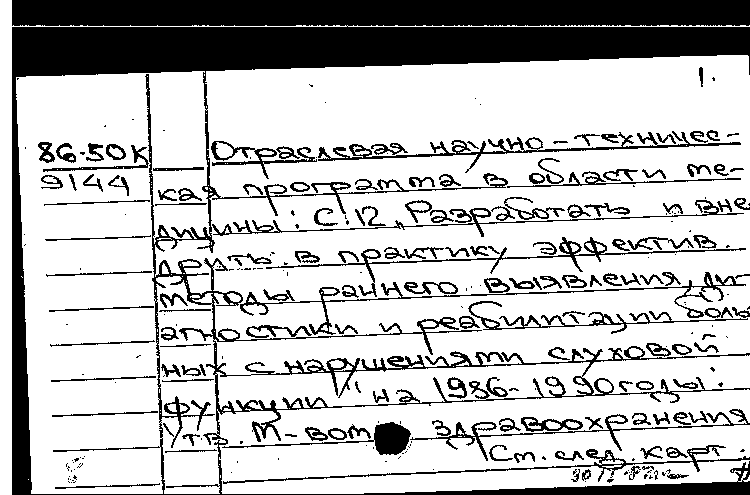 1.
86-50К Отраслевая научно-техничес-
9144 кая программа в области ме-
дицины: С.12 „Разработать и вне-
дрить в практику эффектив.
методы раннего выявления, ди-
агностики и реабилитации боль-
ных с нарушениями слуховой
функции" на 1986-1990 годы:
Утв. М-вом здравоохранения
Ст. след. карт.